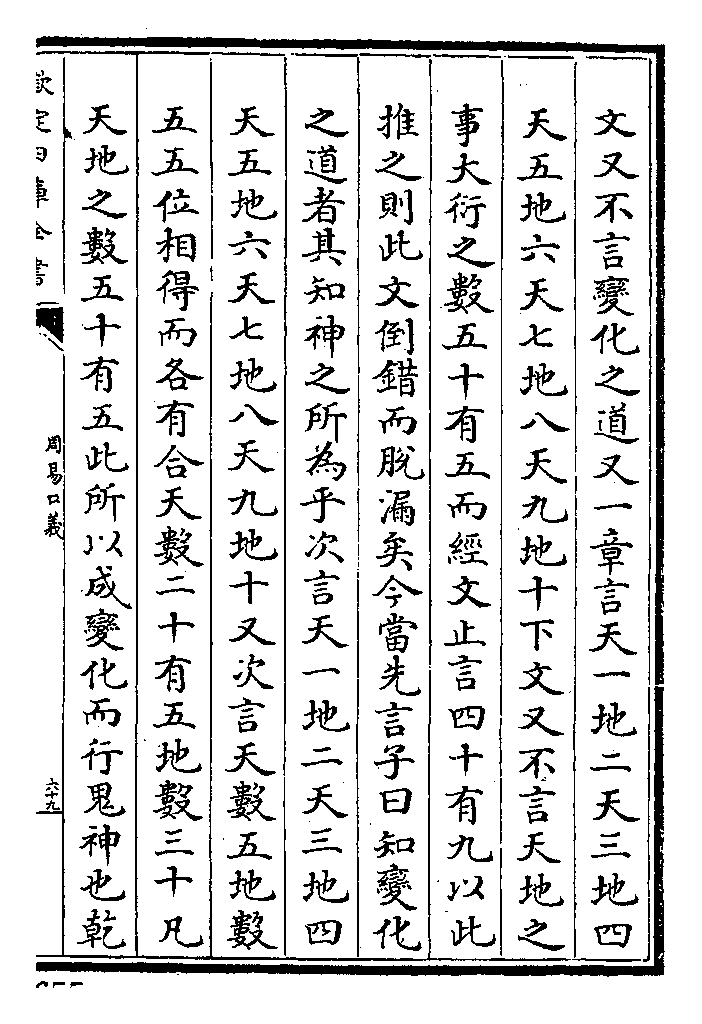 文又不言變化之道又一章言天一地二天三地四
天五地六天七地八天九地十下文又不言天地之
事大衍之數五十有五而經文止言四十有九以此
推之則此文倒錯而脫漏矣今當先言子曰知變化
之道者其知神之所為乎次言天一地二天三地四
天五地六天七地八天九地十又次言天數五地數
五五位相得而各有合天數二十有五地數三十凡
天地之數五十有五此所以成變化而行鬼神也乾
欽定四庫全書
周易口義
六十九